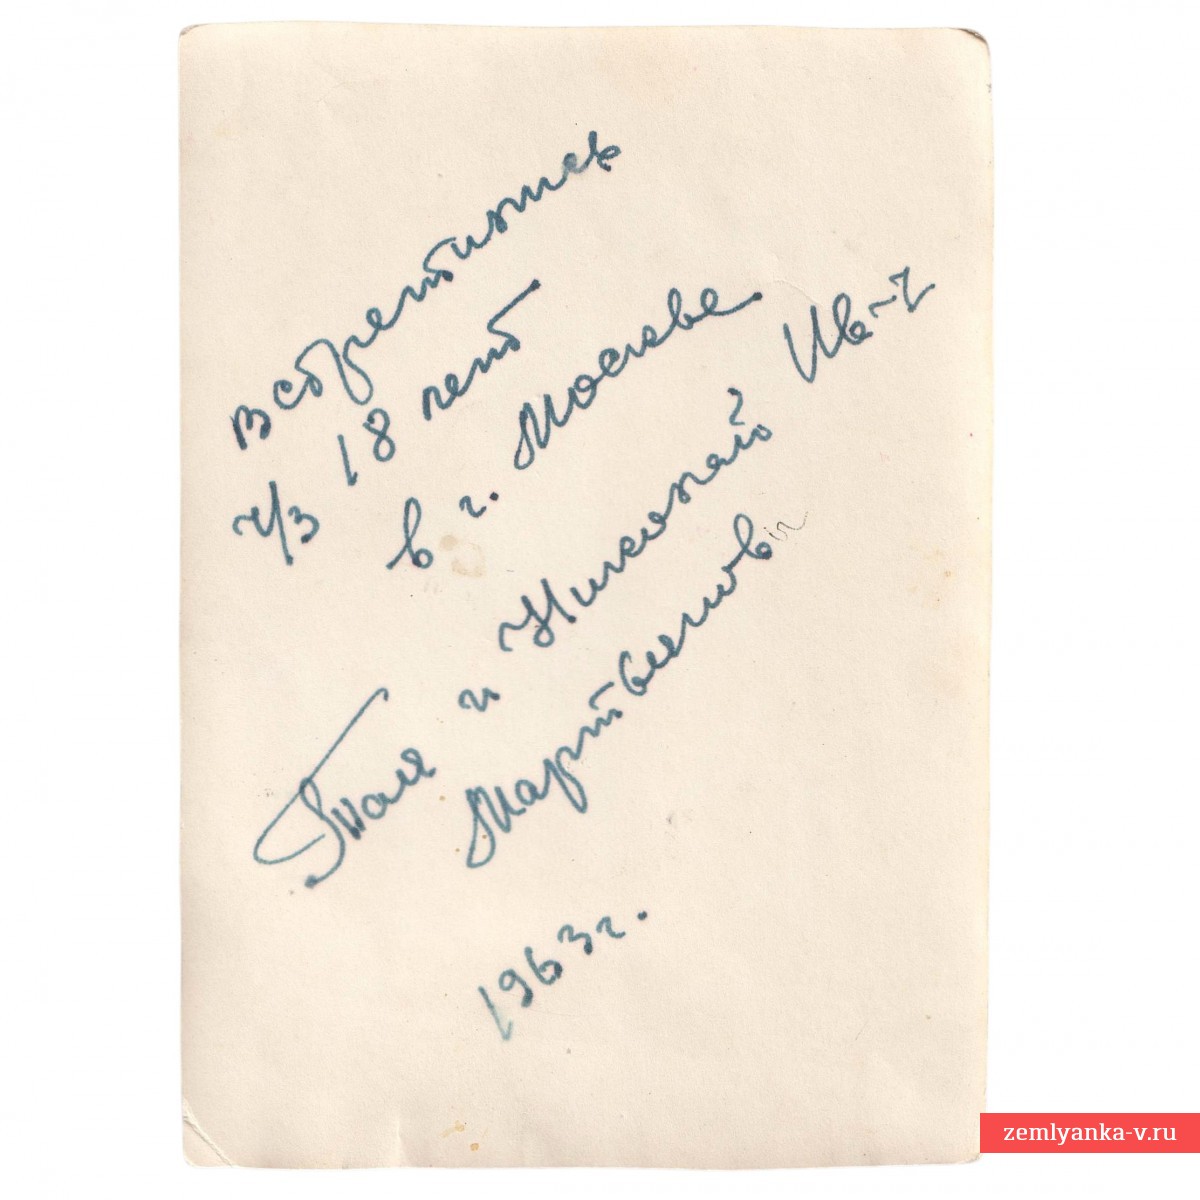 встретились
ч/з 18 лет
в г. Москве
Толя и Николай Ив-ч
Мартынов
1963 г.
zemlyanka-v.ru